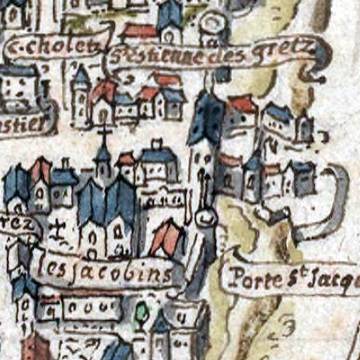 c. choletz
s. estienne des gretz
stier
rez
les Jacobins
Porte St Jacq